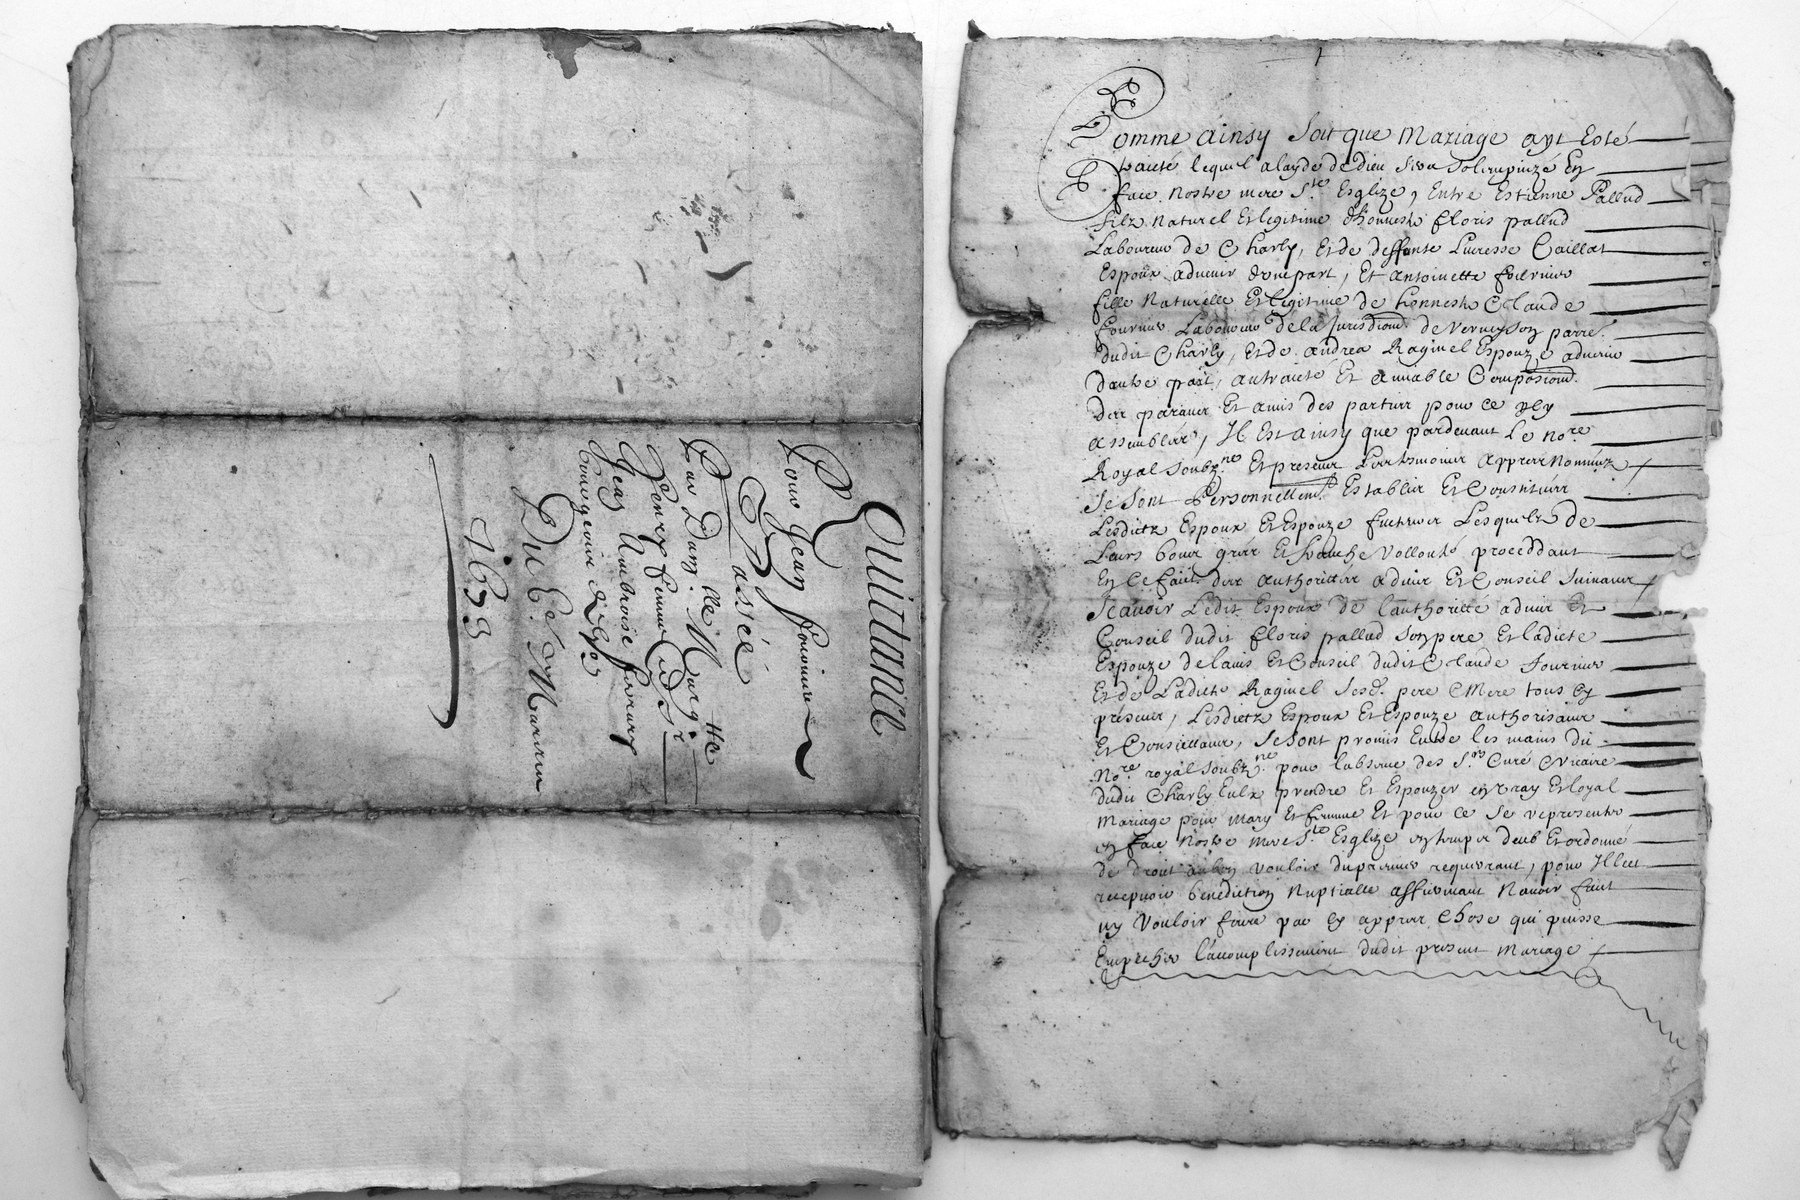 Quittance
Pour Jean fournier
Passée
Par Dam.lle Marg.tte
Jean Ambroise ferrary
bourgeois de Lyon
Du
1693
Comme ainsy soit que Mariage ayt Esté
traicté lequel a layde de dieu sera solempnizé En
face nostre mere S.te Esglize, Entre Estienne Pallud
filz naturel et legitime d'honneste floris pallud
Laboureur de Charly, Et de deffunte Caillat
Espoux advenir d'une part, Et Antoinette fournier
fille Naturelle Et legitime de honneste Claude
fournier Laboureur de la Jurisdiond de parre.
dudit Charly, Et de andrea Raginel Espouze advenir
dautre part, au traicté Et amiable Composiond
des parans Et amis des parties pour ce icy
assemblés, Il Est ainsy que pardevant Le no.re
Royal soubz.né Et presens Les tesmoins appres nommez
se sont Personnellem.t Establis Et Constitués
Lesdictz Espoux Et Espouze futeurs Lesquelz de
Leurs bons grés Et franche vollonté proceddant
En ce fait des authorittés advis Et Conseil suivans
scavoir Ledit Espoux de l'authoritté advis Et
Conseil dudit floris pallud son pere Et ladicte
Espouze de lavis Et Conseil dudit Claude fournier
Et de Ladicte Raginel sesd. pere Et Mere tous icy
présens, Lesdictz Espoux Et Espouze authorisans
Et Conseillans, se sont promis Entre les mains du
No.re royal soubz.né pour labsence des S.rs Curé Et vicaire
dudit Charly Eulx prendre Et Espouzer en vray Et loyal
Mariage pour mary Et femme Et pour ce se representer
en face Nostre mere S.te Esglize en temps deub Et ordonné
de droit au bon vouloir du premier requerant, pour Illec
recepvoir benediction Nuptialle affirmant Navoir fait
ny Vouloir faire par cy appres Chose qui puisse
Empecher l'accomplissement dudit present Mariage